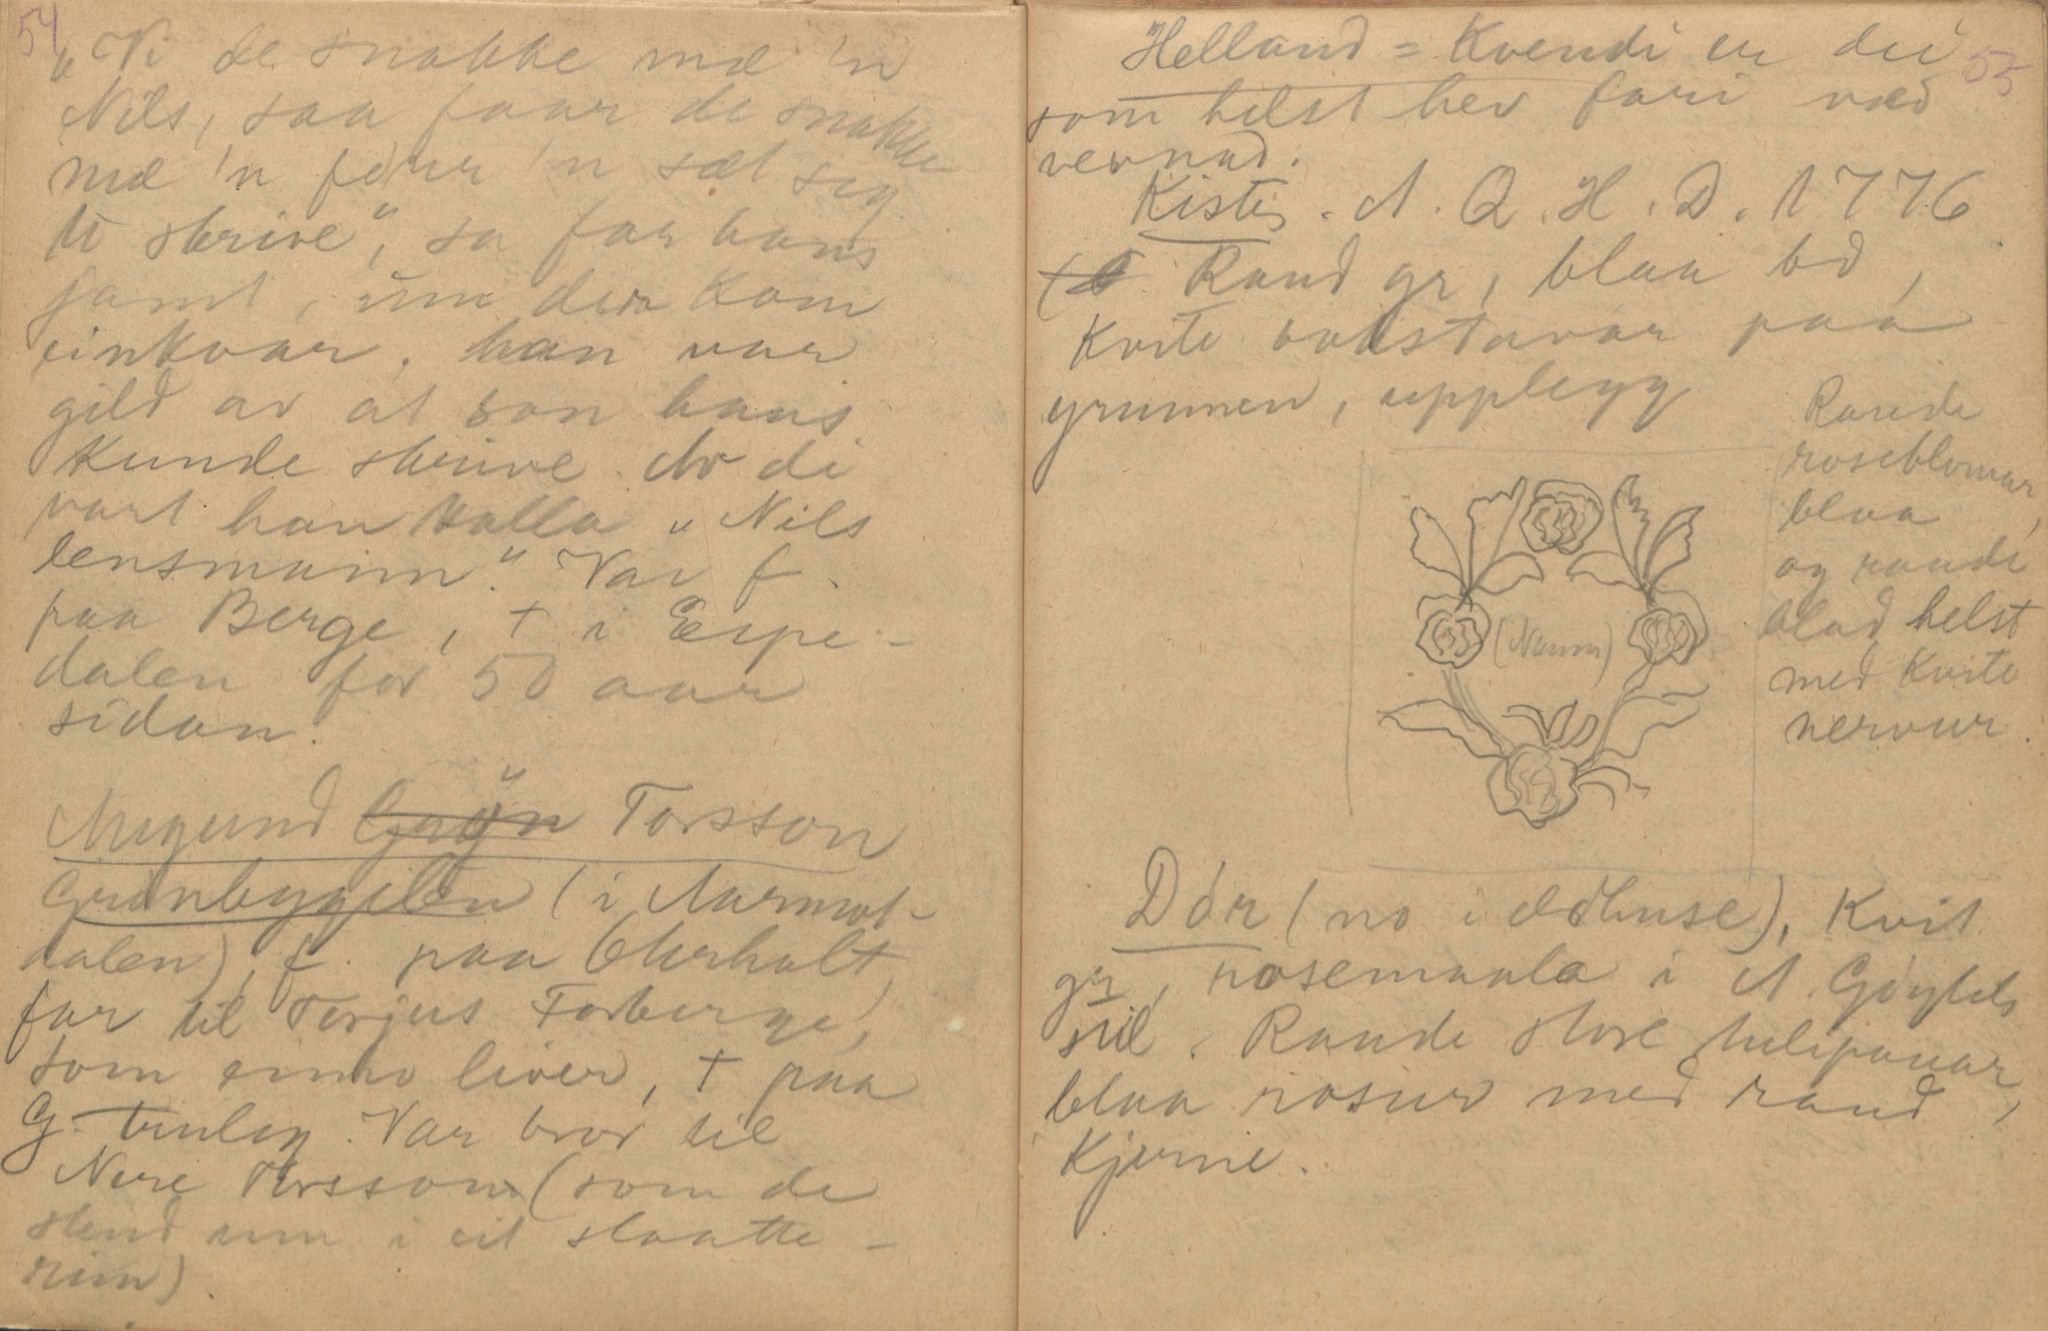 54
„Vi de snakke mæ 'n
Nils, saa faar de snakke
mæ 'n förr 'n sæt seg
te skrive", sa far hans
jamt, um der kom
einkvar. han var
gild av at son hans
kunde skrive. Av di
vart han kalla „Nils
lensmann". Var f.
paa Berge, † i Espe-
dalen for 50 aar
sidan.
Augund Torsson
Grönbyggilen (i Aarmot-
dalen), f. paa
far til Torjus Torberge,
som enno liver, † paa
G. Var bror til
Nere Torsson (som de
stend um i eit slaatte-
rim).
55
Helland = Kvendi er dei
som helst hev fari med
vevnad.
Kiste. A. Q. H. D. 1776
Raud gr, blaa bd,
Kvite bokstavar paa
grunnen, upplegg
Raude
roseblomar,
blaa
og raude
blad helst
med kvite
nervur.
(Namn)
Dör (no i eldhuse), Kvit
gr, rosemaala i A. Göytils
stil. Raude store tulipanar,
blaa rosur med raud
Kjerne.